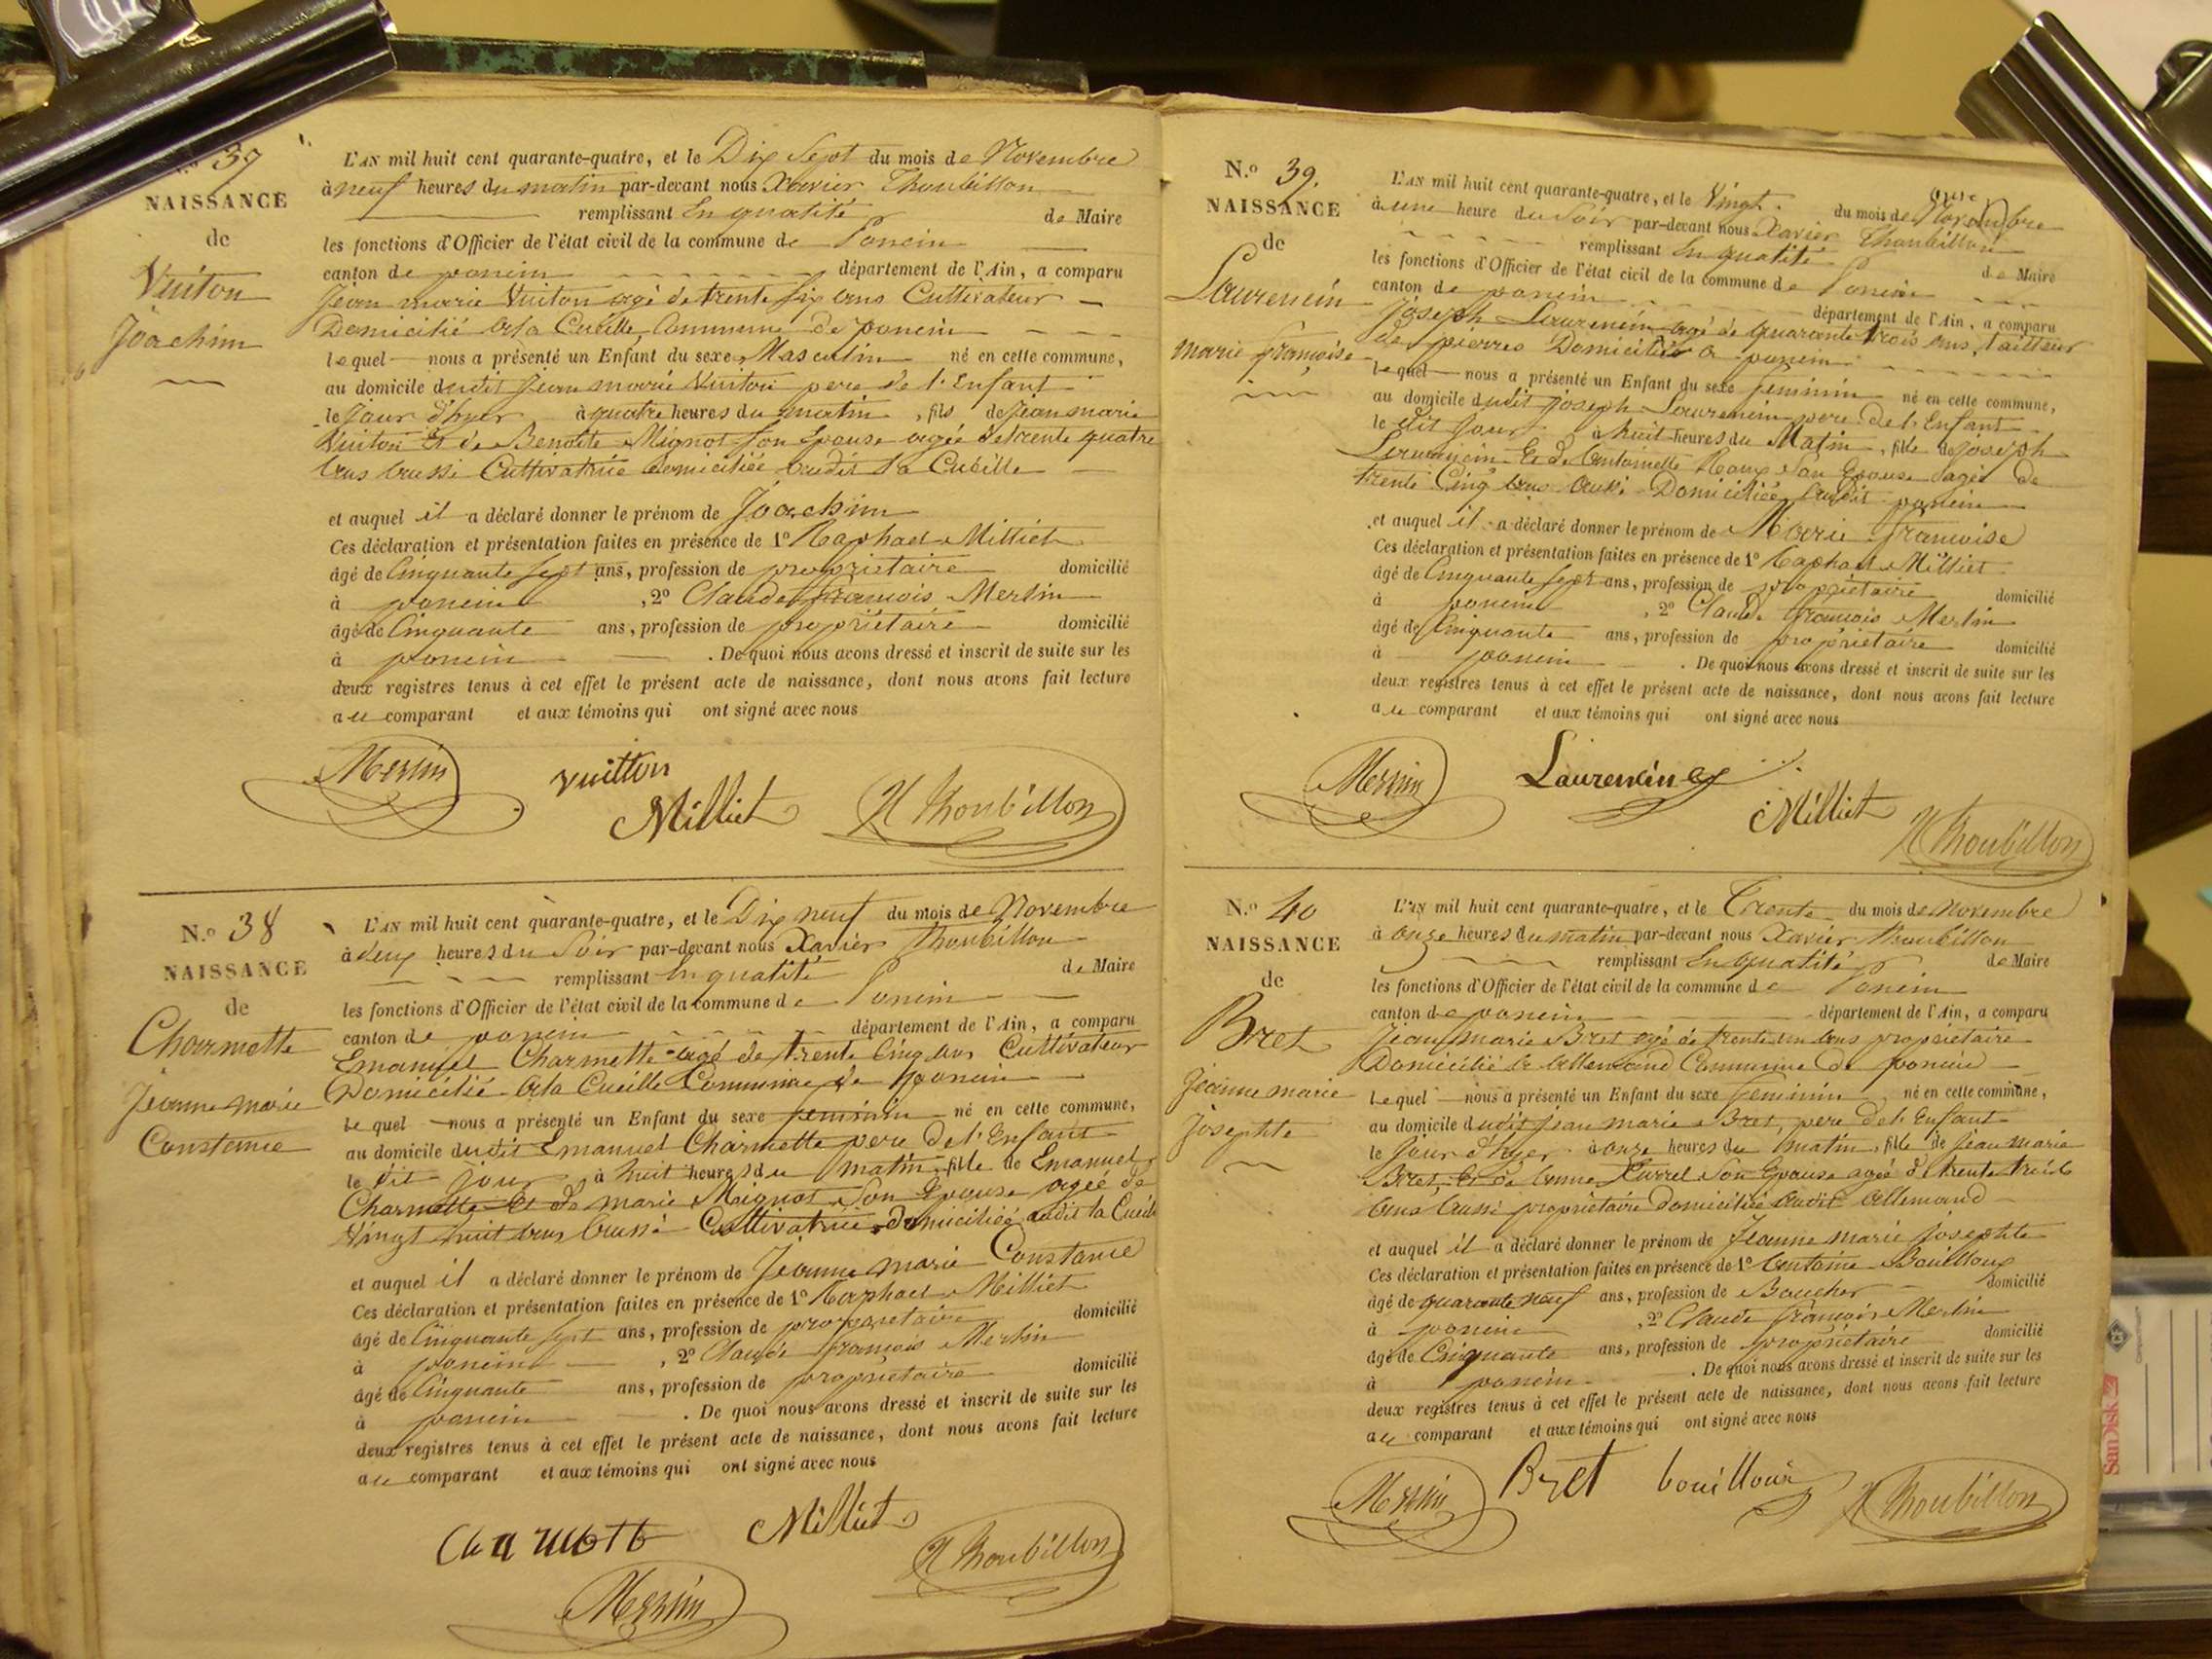 37
NAISSANCE
de
Vuiton
Joachim
L'AN mil huit cent quarante-quatre, et le Dix Sept du mois de Novembre
à neuf heures du matin par-devant nous Xavier Thoubillon
remplissant En qualité de Maire
les fonctions d'Officier de l'état civil de la commune de Poncin
canton de poncin département de l'Ain, a comparu
Jean marie Vuiton agé de trente six ans Cultivateur
Domicilié a la Cueille Commune de poncin
lequel nous a présenté un Enfant du sexe Masculin né en cette commune,
au domicile dudit Jean marie Vuiton pere de l'Enfant
le jour d'hyer à quatre heures du matin, fils de Jean marie
Vuiton Et de Benoite Mignot son Epouse agée de trente quatre
ans aussi Cultivatrice domiciliée audit la Cueille
et auquel il a déclaré donner le prénom de Joachim
Ces déclaration et présentation faites en présence de 1º Raphael Milliet
âgé de Cinquante sept ans, profession de propriétaire domicilié
à poncin, 2º Claude françois Merlin
âgé de Cinquante ans, profession de propriétaire domicilié
à poncin. De quoi nous avons dressé et inscrit de suite sur les
deux registres tenus à cet effet le présent acte de naissance, dont nous avons fait lecture
au comparant et aux témoins qui ont signé avec nous
Merlin vuitton
Milliet X Thoubillon
N.º 38
NAISSANCE
de
Charmette
Jeanne marie
Constance
L'AN mil huit cent quarante-quatre, et le Dix neuf du mois de Novembre
à deux heures du Soir par-devant nous Xavier Thoubillon
remplissant En qualité de Maire
les fonctions d'Officier de l'état civil de la commune de Poncin
canton de poncin département de l'Ain, a comparu
Emanuel Charmette agé de trente Cinq ans Cultivateur
Domicilié a la Cueille Commune de poncin
lequel nous a présenté un Enfant du sexe feminin né en cette commune,
au domicile dudit Emanuel Charmette pere de l'Enfant
le dit jour à huit heures du matin, fille de Emanuel
Charmette Et de marie Mignot son Epouse agée de
Vingt huit ans aussi Cultivatrice domiciliée audit la Cueille
et auquel il a déclaré donner le prénom de Jeanne marie Constance
Ces déclaration et présentation faites en présence de 1º Raphael Milliet
âgé de Cinquante sept ans, profession de propriétaire domicilié
à poncin, 2º Claude françois Merlin
âgé de Cinquante ans, profession de propriétaire domicilié
à poncin. De quoi nous avons dressé et inscrit de suite sur les
deux registres tenus à cet effet le présent acte de naissance, dont nous avons fait lecture
au comparant et aux témoins qui ont signé avec nous
Milliet
X Thoubillon
Merlin
N.º 39.
NAISSANCE
de
Laurencin
marie françoise
L'AN mil huit cent quarante-quatre, et le Vingt du mois de Novembre
à une heure du Soir par-devant nous Xavier Thoubillon
remplissant En qualité de Maire
les fonctions d'Officier de l'état civil de la commune de Poncin
canton de poncin département de l'Ain, a comparu
Joseph Laurencin agé de quarante trois ans, tailleur
de pierres Domicilié a poncin
lequel nous a présenté un Enfant du sexe feminin né en cette commune,
au domicile dudit Joseph Laurencin pere de l'Enfant
le dit jour à huit heures du Matin, fille de Joseph
Laurencin Et de Antoinette Roux son Epouse agée de
trente Cinq ans aussi Domiciliée audit poncin
et auquel il a déclaré donner le prénom de Marie françoise
Ces déclaration et présentation faites en présence de 1º Raphael Milliet
âgé de Cinquante sept ans, profession de propriétaire domicilié
à poncin, 2º Claude françois Merlin
âgé de Cinquante ans, profession de propriétaire domicilié
à poncin. De quoi nous avons dressé et inscrit de suite sur les
deux registres tenus à cet effet le présent acte de naissance, dont nous avons fait lecture
au comparant et aux témoins qui ont signé avec nous
Merlin Laurencin
Milliet
X Thoubillon
N.º 40
NAISSANCE
de
Bret
Jeanne marie
Josephte
L'AN mil huit cent quarante-quatre, et le Trente du mois de Novembre
à onze heures du matin par-devant nous Xavier Thoubillon
remplissant En qualité de Maire
les fonctions d'Officier de l'état civil de la commune de Poncin
canton de poncin département de l'Ain, a comparu
Jean marie Bret agé de trente un ans propriétaire
Domicilié a allemand Commune de poncin
lequel nous a présenté un Enfant du sexe feminin né en cette commune,
au domicile dudit Jean marie Bret, pere de l'Enfant
le jour d'hyer à onze heures du matin, fille de Jean marie
Bret, Et de anne son Epouse agée de trente trois
ans aussi propriétaire domiciliée audit allemand
et auquel il a déclaré donner le prénom de Jeanne marie Josephte
Ces déclaration et présentation faites en présence de 1º antoine Bouilloux
âgé de quarante neuf ans, profession de Boucher domicilié
à poncin, 2º Claude françois Merlin
âgé de Cinquante ans, profession de propriétaire domicilié
à poncin. De quoi nous avons dressé et inscrit de suite sur les
deux registres tenus à cet effet le présent acte de naissance, dont nous avons fait lecture
au comparant et aux témoins qui ont signé avec nous
Merlin Bret bouilloux X Thoubillon
SanDisk